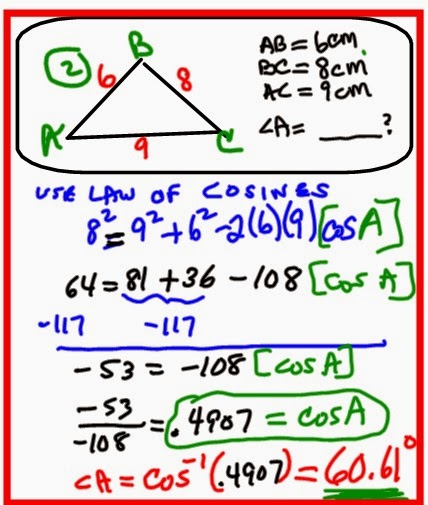 2
B
6
8
A
9
C
AB = 6cm.
BC = 8cm
AC = 9cm
<A = ____?
USE LAW OF COSINES
8² = 9² + 6² - 2(6)(9)[cos A]
64 = 81 + 36 - 108 [cos A]
-117 -117
-53 = -108 [cos A]
-53/-108 = .4907 = cos A
<A = cos⁻¹(.4907) = 60.61°